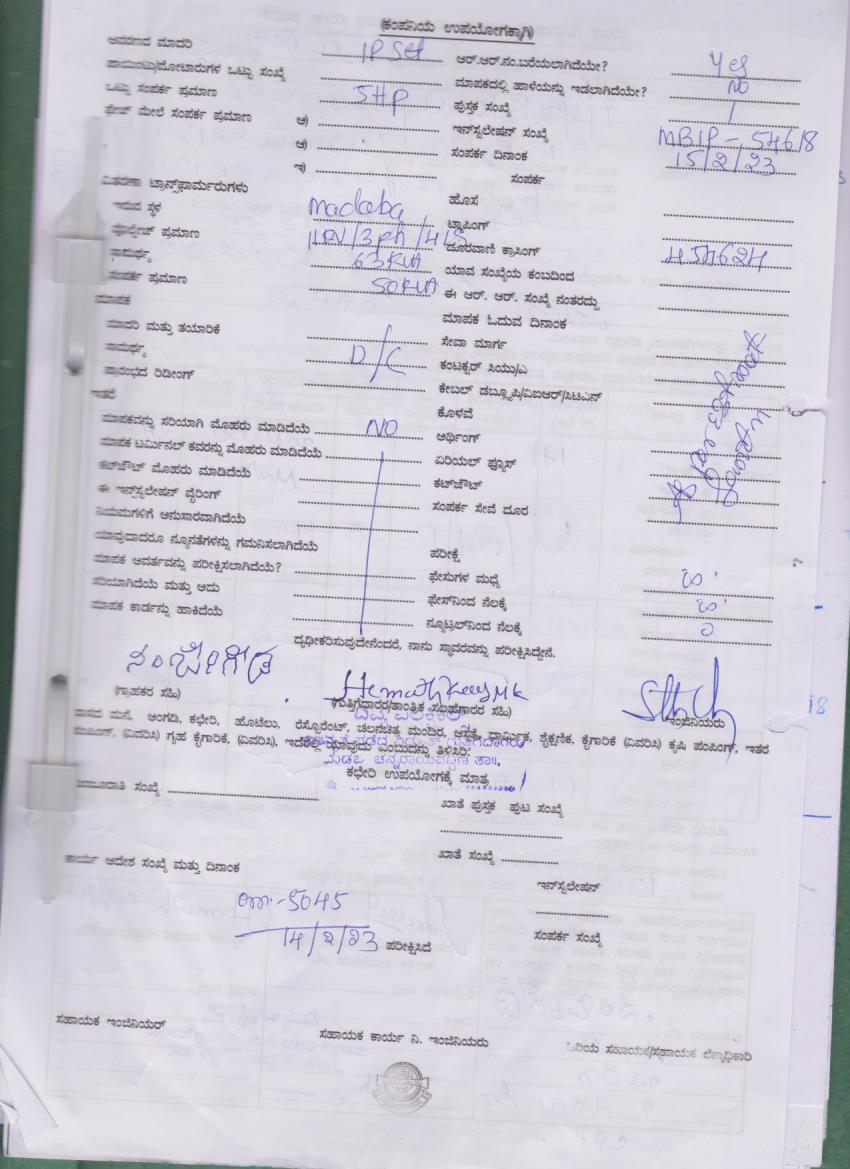 (ಕಂಪನಿಯ ಉಪಯೋಗಕ್ಕಾಗಿ)
ಆವರಣದ ಮಾದರಿ IP Set ಆರ್.ಆರ್.ನಂ.ಬರೆಯಲಾಗಿದೆಯೇ? Yes
ಪಾಯಿಂಟು/ಮೋಟಾರುಗಳ ಒಟ್ಟು ಸಂಖ್ಯೆ ಮಾಪಕದಲ್ಲಿ ಹಾಳೆಯನ್ನು ಇಡಲಾಗಿದೆಯೇ? NO
ಒಟ್ಟು ಸಂಪರ್ಕ ಪ್ರಮಾಣ 5HP ಪುಸ್ತಕ ಸಂಖ್ಯೆ 1
ಫೇಜ್ ಮೇಲೆ ಸಂಪರ್ಕ ಪ್ರಮಾಣ ಅ) ಇನ್‌ಸ್ಟಲೇಷನ್ ಸಂಖ್ಯೆ MBIP-54618
ಆ) ಸಂಪರ್ಕ ದಿನಾಂಕ 15/2/23
ಇ) ಸಂಪರ್ಕ
ವಿತರಣಾ ಟ್ರಾನ್ಸ್‌ಫಾರ್ಮರುಗಳು ಹೊಸ
ಇರುವ ಸ್ಥಳ madaba ಟ್ಯಾಪಿಂಗ್
ವೋಲ್ಟೇಜ್ ಪ್ರಮಾಣ 11KV/3Ph/4LS ದೂರವಾಣಿ ಕ್ರಾಸಿಂಗ್ 454624
ಸಾಮರ್ಥ್ಯ 63KVA ಯಾವ ಸಂಖ್ಯೆಯ ಕಂಬದಿಂದ
ಸಂಪರ್ಕ ಪ್ರಮಾಣ 50KVA ಈ ಆರ್. ಆರ್. ಸಂಖ್ಯೆ ನಂತರದ್ದು
ಮಾಪಕ ಮಾಪಕ ಓದುವ ದಿನಾಂಕ
ಮಾದರಿ ಮತ್ತು ತಯಾರಿಕೆ ಸೇವಾ ಮಾರ್ಗ
ಸಾಮರ್ಥ್ಯ D/C ಕಂಟಕ್ಟರ್ ಸಿಯು/ಎ
ಪ್ರಾರಂಭದ ರಿಡೀಂಗ್ ಕೇಬಲ್ ಡಬ್ಲ್ಯೂಪಿ/ಐಐಆರ್/ಸಿಟಿಎಸ್
ಇತರೆ ಕೊಳವೆ
ಮಾಪಕವನ್ನು ಸರಿಯಾಗಿ ಮೊಹರು ಮಾಡಿದೆಯೆ NO ಆರ್ಥಿಂಗ್
ಮಾಪಕ ಟರ್ಮಿನಲ್ ಕವರನ್ನು ಮೊಹರು ಮಾಡಿದೆಯೆ ಏರಿಯಲ್ ಫ್ಯೂಸ್
ಕಟ್‌ಔಟ್ ಮೊಹರು ಮಾಡಿದೆಯೆ ಕಟ್‌ಔಟ್
ಈ ಇನ್ಸ್‌ಟಲೇಷನ್ ವೈರಿಂಗ್ ಸಂಪರ್ಕ ಸೇವೆ ದೂರ
ನಿಯಮಗಳಿಗೆ ಅನುಸಾರವಾಗಿದೆಯೆ
ಯಾವುದಾದರೂ ನ್ಯೂನತೆಗಳನ್ನು ಗಮನಿಸಲಾಗಿದೆಯೆ ಪರೀಕ್ಷೆ
ಮಾಪಕ ಆವರ್ತವನ್ನು ಪರೀಕ್ಷಿಸಲಾಗಿದೆಯೆ? ಫೇಸುಗಳ ಮಧ್ಯೆ
ಸರಿಯಾಗಿದೆಯೆ ಮತ್ತು ಅದು ಫೇಸ್‌ನಿಂದ ನೆಲಕ್ಕೆ
ಮಾಪಕ ಕಾರ್ಡನ್ನು ಹಾಕಿದೆಯೆ ನ್ಯೂಟ್ರಲ್‌ನಿಂದ ನೆಲಕ್ಕೆ 0
ದೃಢೀಕರಿಸುವುದೇನೆಂದರೆ, ನಾನು ಸ್ಥಾವರವನ್ನು ಪರೀಕ್ಷಿಸಿದ್ದೇನೆ.
(ಗ್ರಾಹಕರ ಸಹಿ) (ಗುತ್ತಿಗೆದಾರರ/ತಾಂತ್ರಿಕ ಸಲಹೆಗಾರರ ಸಹಿ) ಇಂಜಿನಿಯರು
ವಾಸದ ಮನೆ, ಅಂಗಡಿ, ಕಛೇರಿ, ಹೊಟೆಲು, ರೆಸ್ಟೊರೆಂಟ್, ಚಲನಚಿತ್ರ ಮಂದಿರ, ಆಸ್ಪತ್ರೆ, ಧಾರ್ಮಿಕ, ಶೈಕ್ಷಣಿಕ, ಕೈಗಾರಿಕೆ (ವಿವರಿಸಿ) ಕೃಷಿ ಪಂಪಿಂಗ್, ಇತರ
ಪಂಪಿಂಗ್, (ವಿವರಿಸಿ) ಗೃಹ ಕೈಗಾರಿಕೆ, (ವಿವರಿಸಿ), ಇದರಲ್ಲಿ ಯಾವುದು ಎಂಬುದನ್ನು ತಿಳಿಸಿರಿ:
ಕಛೇರಿ ಉಪಯೋಗಕ್ಕೆ ಮಾತ್ರ
ಮಂಜೂರಾತಿ ಸಂಖ್ಯೆ ಖಾತೆ ಪುಸ್ತಕ ಪುಟ ಸಂಖ್ಯೆ
ಖಾತೆ ಸಂಖ್ಯೆ
ಕಾರ್ಯ ಆದೇಶ ಸಂಖ್ಯೆ ಮತ್ತು ದಿನಾಂಕ
ಇನ್‌ಸ್ಟಲೇಷನ್
om-5045
14/2/23 ಪರೀಕ್ಷಿಸಿದೆ
ಸಂಪರ್ಕ ಸಂಖ್ಯೆ
ಸಹಾಯಕ ಇಂಜಿನಿಯರ್ ಸಹಾಯಕ ಕಾರ್ಯ ನಿ. ಇಂಜಿನಿಯರು ಹಿರಿಯ ಸಹಾಯಕ/ಸಹಾಯಕ ಲೆಕ್ಕಾಧಿಕಾರಿ